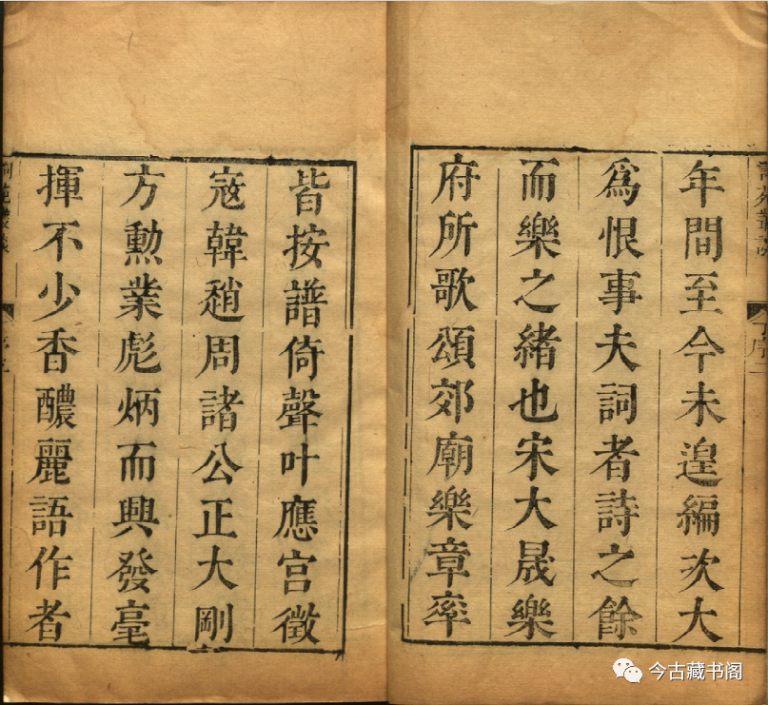 年間至今未遑編次大
爲恨事夫詞者詩之餘
而樂之緒也宋大晟樂
府所歌頌郊廟樂章率
皆按譜倚聲叶應宮徵
寇韓趙周諸公正大剛
方勳業彪炳而興發毫
揮不少香醲麗語作者
今古藏书阁